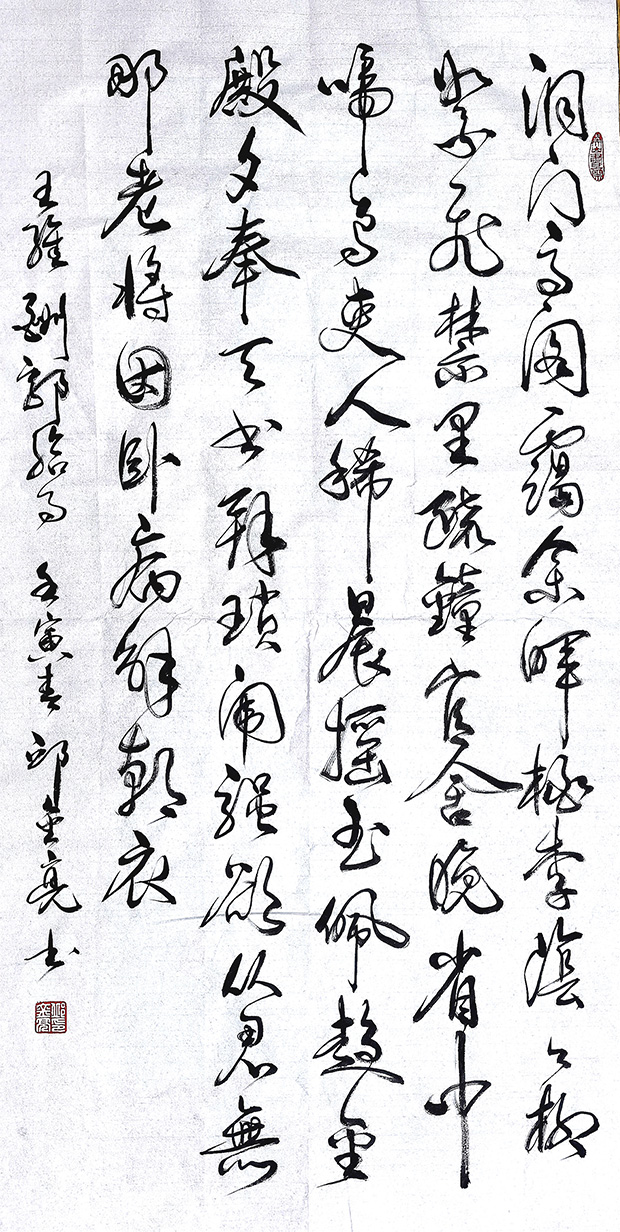 洞门高阁靄余晖桃李蔭々柳
絮飞禁里疏鐘官舍晚省中
啼鸟吏人稀晨摇玉佩趋金
殿夕奉天书拜琐闱强欲从君無
那老将因卧病解朝衣
王維酬郭给事 壬寅春 邱金亮书